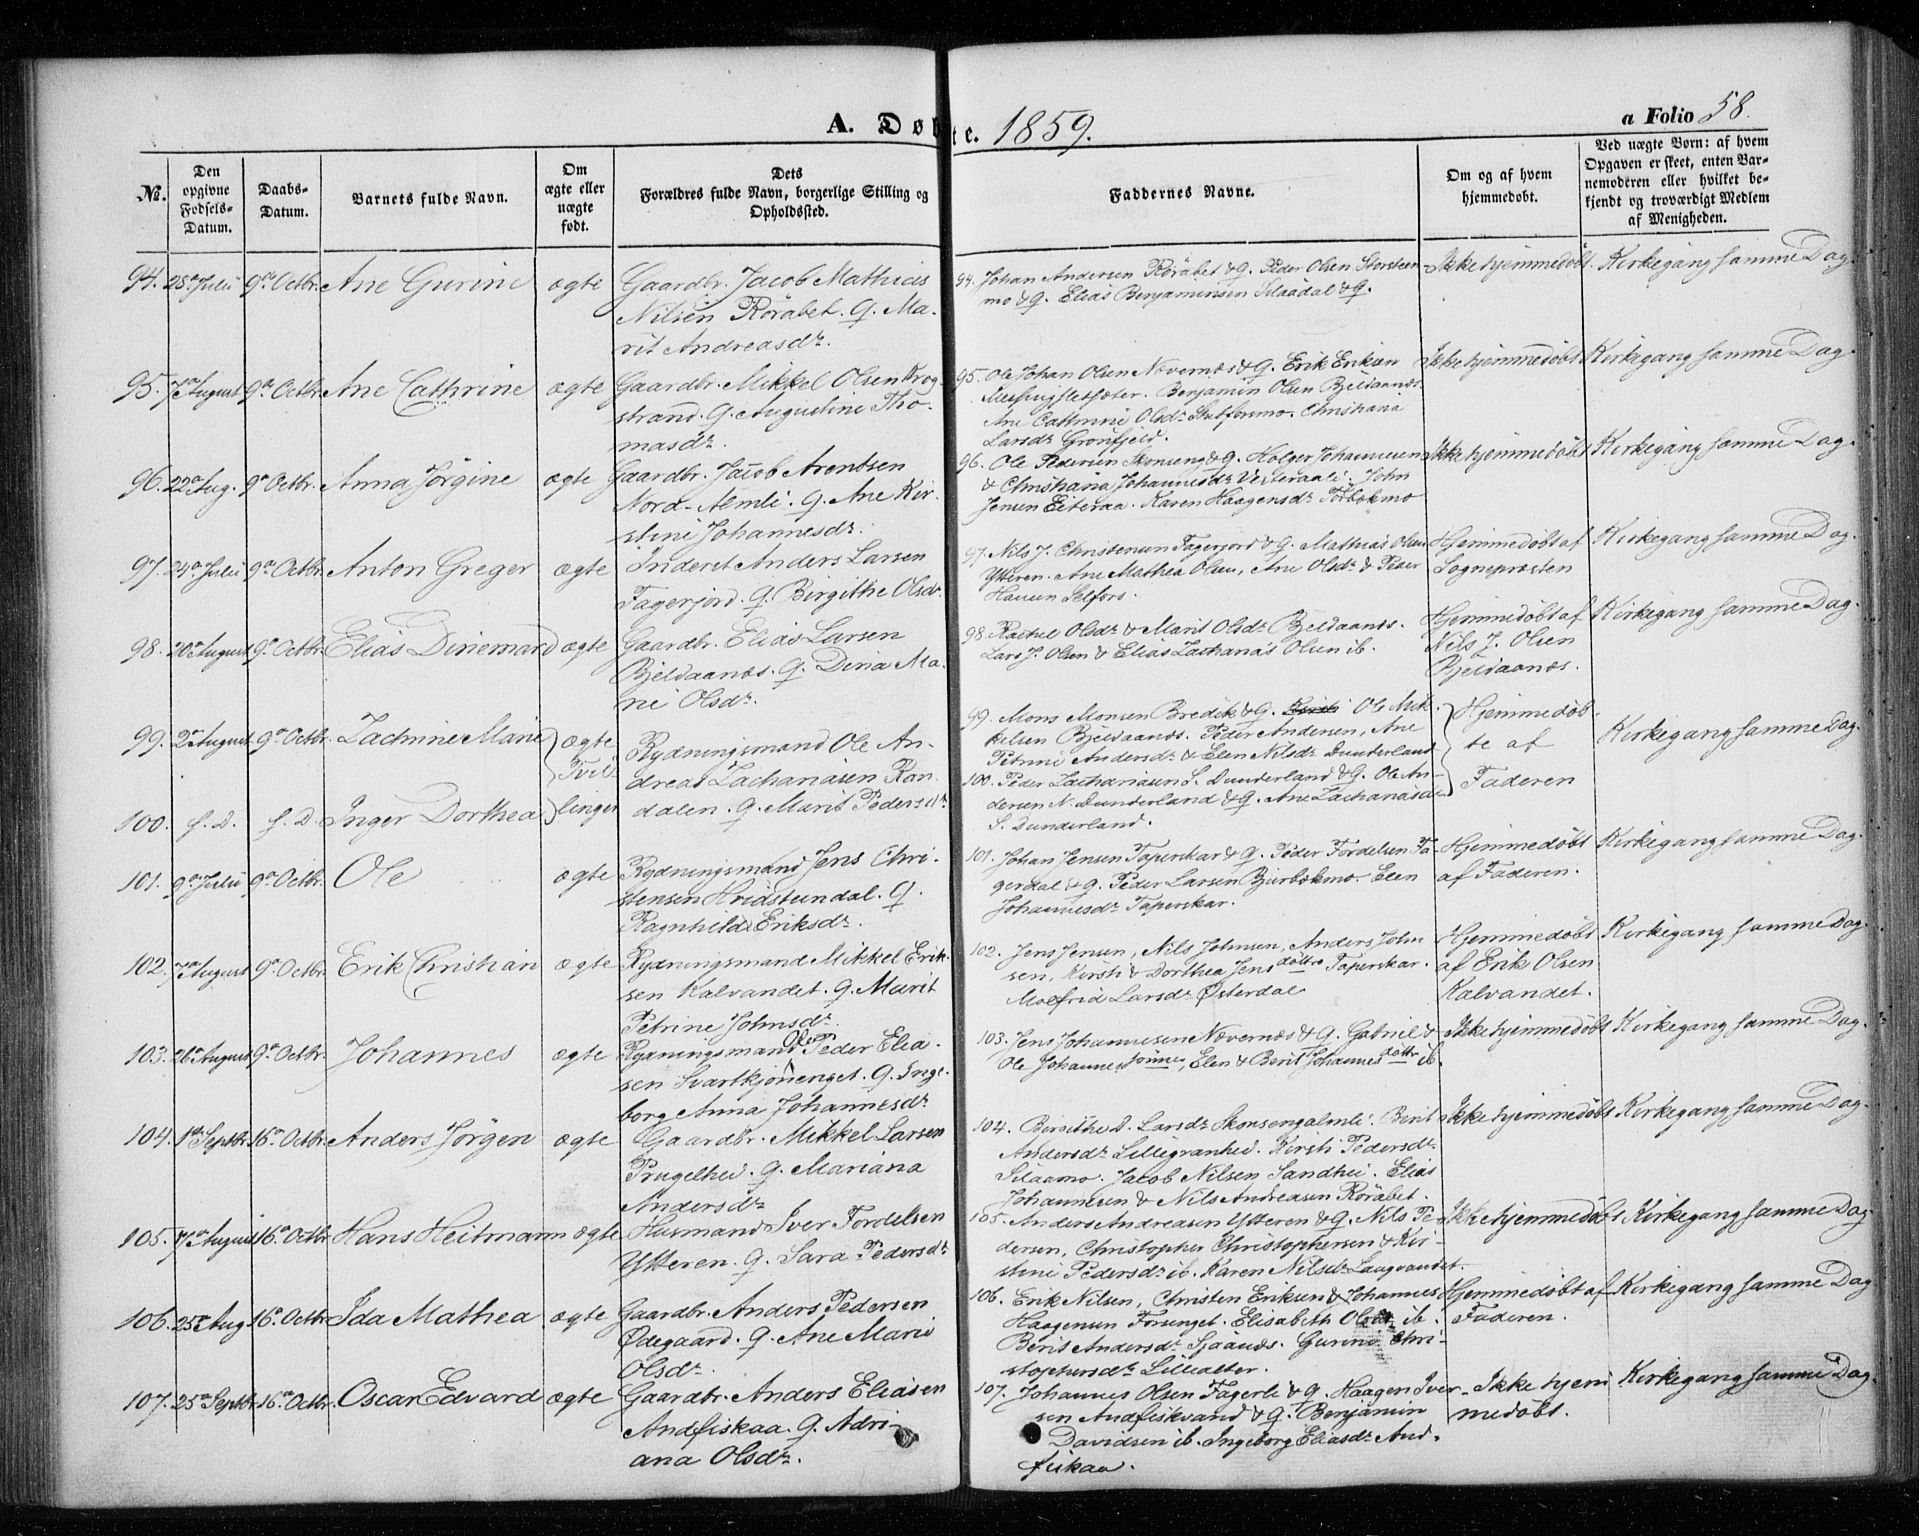 A. Døbte. 1859.
a Folio 58.
No.
Den opgivne Fødsels-Datum.
Daabs-Datum.
Barnets fulde Navn.
Om ægte eller uægte født.
Dets Forældres fulde Navn, borgerlige Stilling og Opholdssted.
Faddernes Navne.
Om og af hvem hjemmedøbt.
Ved uægte Børn: af hvem Opgaven er skeet, enten Barnemoderen eller hvilket bekjendt og troværdigt Medlem af Menigheden.
94. 28de Julii 9de Octbr. Ane Gurine ægte Gaardbr. Jacob Mathias
Nilsen Röräbet. Q. Ma-
rit Andreasdr.
94. Johan Andersen Röräbet & Q. Peder Olsen Storsteen-
mo & Q. Elias Benjaminsen Silaadal & Q.
Ikke hjemmedøbt. Kirkegang samme Dag.
95. 7de August 9de Octbr. Ane Cathrine ægte Gaardbr. Mikkel Olsen Krog-
strand. Q. Augustine Tho-
masdr.
95. Ole Johan Olsen Nævernæs & Q. Erik Eriksen
Benjamin Olsen Bjeldaanæs.
Ane Cathrine Olsdr. Christiana
Larsdr. Grönfjeld.
Ikke hjemmedøbt Kirkegang samme Dag.
96. 22de Aug. 9de Octbr. Anna Jörgine ægte Gaardbr. Jacob Arentsen
Nord-Almli. Q. Ane Kir-
stine Johannesdr.
96. Ole Pedersen Skonseng & Q. Holger Johannesen
& Christiana Johannesdr. Vesteraali. John
Jensen Eiteraa. Karen Haagensdr. Torbækmo
Ikke hjemmedøbt Kirkegang samme Dag.
97. 24de Julii 9de Octbr. Anton Greger ægte Inderst Anders Larsen
Fagerjord. Q. Birgithe Olsdr.
97. Nils J. Christensen Fagerjord & Q. Mathias Olsen
Ytteren. Ane Mathea Olsen, Ane Olsdr. & Peder
Hansen Selfors.
Hjemmedøbt af
Sognepræsten
Kirkegang samme Dag.
98. 20de August 9de Octbr. Elias Dinemard ægte Gaardbr. Elias Larsen
Bjeldaanæs. Q. Dina Ma-
rie Olsdr.
98. Rachel Olsdr. & Marit Olsdr. Bjeldaanæs.
Lars J. Olsen & Elias Zacharias Olsen ib.
Hjemmedøbt af
Nils J. Olsen
Bjeldaanæs.
Kirkegang samme Dag.
99. 2de August 9de Octbr. Zachrine Marie ægte Tvil-
Rydningsmand Ole An-
dreas Zachariasen Ran-
dalen. Q. Marit Pedersdr.
99. Mons Monsen Bredek & Q. Ole Mik-
kelsen Bjeldaanæs. Peder Andersen, Ane
Petrine Andersdr. & Elen Nilsdr. Dunderland
Hjemmedøb-
te af
Faderen
Kirkegang samme Dag
100. s. D. s. D. Inger Dorthea linger
100. Peder Zachariasen S. Dunderland & Q. Ole An-
dersen N. Dunderland & Q. Ane Zachariasdr.
S. Dunderland.
101. 9de Julii 9de Octbr. Ole ægte Rydningsmand Jens Chri-
stensen Hvidsteendal. Q.
Ragnhild Eriksdr.
101. Johan Jensen Taperskar & Q. Peder Fordelsen Fa-
gerdal & Q. Peder Larsen Bjerbækmo. Elen
Johannesdr. Taperskar.
Hjemmedøbt
af Faderen.
Kirkegang samme Dag.
102. 7de August 9de Octbr. Erik Christian ægte Rydningsmand Mikkel Erik-
sen Kalvandet. Q. Marit
Petrine Johnsdr.
102. Jens Jensen, Nils Johnsen, Anders John-
sen, Kirsti & Dorthea Jensdöttre Taperskar.
Malfrid Larsdr. Østerdal
Hjemmedøbt
af Erik Olsen
Kalvandet.
Kirkegang samme Dag.
103. 26de August 9de Octbr. Johannes ægte Rydningsmand Ole Peder Elia-
sen Svartkjønenget. Q. Inge-
borg Anna Johannesdr.
103. Jens Johannesen Nævernæs & Q. Gabriel &
Ole Johannessönner, Elen & Berit Johannesdöttr. ib.
Ikke hjemmedøbt Kirkegang samme Dag.
104. 1ste Septbr. 16de Octbr. Anders Jörgen ægte Gaardbr. Mikkel Larsen
Prugelhei. Q. Mariana
Andersdr.
104. Birgithe D. Larsdr. Skonsengalmli. Berit
Andersdr. Lillegranhei. Kirsti Pedersdr.
Silaamo. Jacob Nilsen Sandhei. Elias
Johannesen & Nils Andreasen Röräbet.
Ikke hjemmedøbt Kirkegang samme Dag.
105. August 16de Octbr. Hans Heitmann ægte Husmand Iver Fordelsen
Ytteren. Q. Sara Pedersdr.
105. Anders Andreasen Ytteren & Q. Nils Pe-
dersen, Christopher Christophersen & Kir-
stine Pedersdr. ib. Karen Nilsdr. Langvandet.
Ikke hjemmedøbt Kirkegang samme Dag
106. 25de Aug 16de Octbr. Ida Mathea ægte Gaardbr. Anders Pedersen
Ødegaard. Q. Ane Marie
Olsdr.
106. Erik Nilsen, Christen Eriksen & Johannes
Haagensen Forsunget. Elisabeth Olsdr. ib.
Berit Andersdr. Sjaanæs. Gurine Chri-
stophersdr. Lillealter.
Hjemmedøbt af
Faderen.
Kirkegang samme Dag
107. 25de Septbr 16de Octbr. Oscar Edvard ægte Gaardbr. Anders Eliasen
Andfiskaa. Q. Adri-
ana Olsdr.
107. Johannes Olsen Fagerli & Q. Haagen Iver-
sen Andfiskvand & Q. Benjamin
Davidsen ib. Ingeborg Eliasdr. And-
fiskaa.
Ikke hjem-
medøbt.
Kirkegang samme Dag.